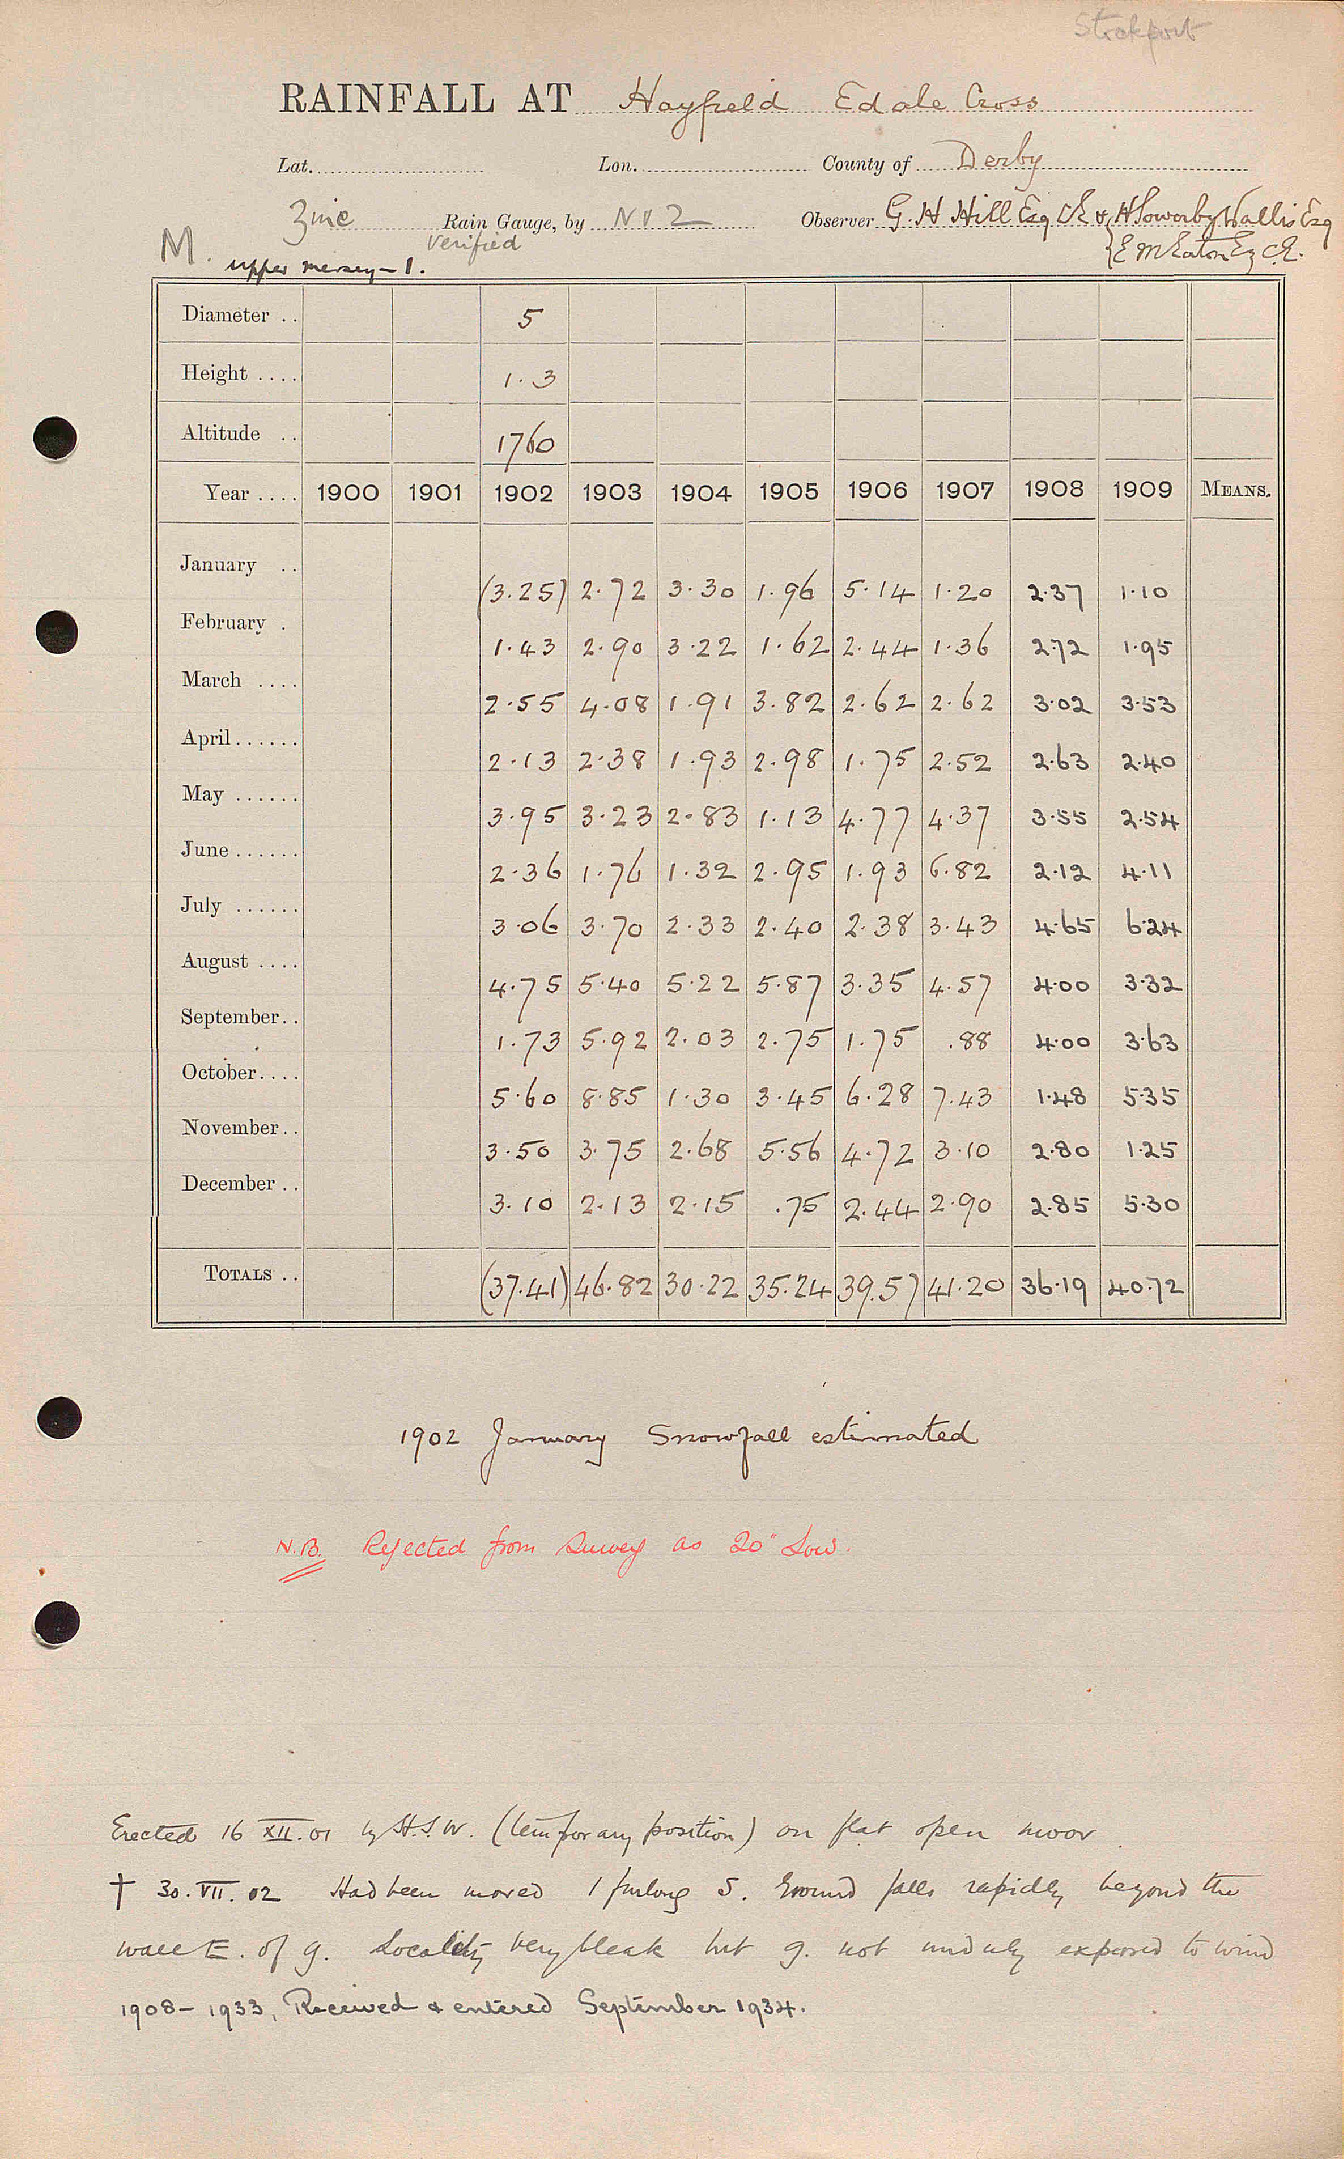 Stockport
RAINFALL AT Hayfield Edale Cross
Lat. Lon. County of Derby
Zinc Rain Gauge, by No 2 Observer G. H Hill Esq CE & H Sowerby Wallis Esq
M. verified { E M Eaton Esq C.E.
upper mersey - 1.
Diameter .. 5
Height .... 1.3
Altitude .. 1760
Year .... 1900 1901 1902 1903 1904 1905 1906 1907 1908 1909 MEANS.
January .. (3.25) 2.72 3.30 1.96 5.14 1.20 2.37 1.10
February . 1.43 2.90 3.22 1.62 2.44 1.36 2.72 1.95
March .... 2.55 4.08 1.91 3.82 2.62 2.62 3.02 3.53
April...... 2.13 2.38 1.93 2.98 1.75 2.52 2.63 2.40
May ...... 3.95 3.23 2.83 1.13 4.77 4.37 3.55 2.54
June ...... 2.36 1.76 1.32 2.95 1.93 6.82 2.12 4.11
July ...... 3.06 3.70 2.33 2.40 2.38 3.43 4.65 6.24
August .... 4.75 5.40 5.22 5.87 3.35 4.57 4.00 3.32
September.. 1.73 5.92 2.03 2.75 1.75 .88 4.00 3.63
October.... 5.60 8.85 1.30 3.45 6.28 7.43 1.48 5.35
November.. 3.50 3.75 2.68 5.56 4.72 3.10 2.80 1.25
December .. 3.10 2.13 2.15 .75 2.44 2.90 2.85 5.30
TOTALS .. (37.41) 46.82 30.22 35.24 39.57 41.20 36.19 40.72
1902 January Snowfall estimated
N.B. Rejected from Survey as 20" Low.
Erected 16 XII. 01 by H.S.W. (temporary position) on flat open moor
† 30. VII. 02 Had been moved 1 furlong S. Ground falls rapidly beyond the
wall E. of g. Locality very bleak but g. not unduly exposed to wind
1908 - 1933, Received & entered September 1934.